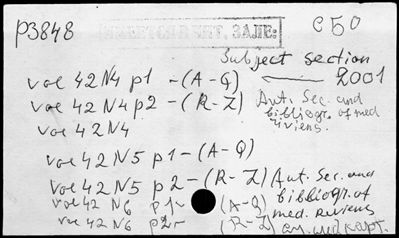 P3848
ИМЕЕТСЯ В ЧИТ. ЗАЛЕ:
С50
Subject section
vol 42 N4 p1 - (A-Q) ← 2001
vol 42 N4 p2 - (R-Z) Aut. Sec. and
bibliogr. of med
vol 42 N4
vol 42 N5 p1 - (A-Q)
vol 42 N5 p2 - (R-Z) Aut. Sec. and
bibliogr. of
vol 42 N6 p1 - (A-Q) med. reviews
vol 42 N6 p2 - (R-Z)